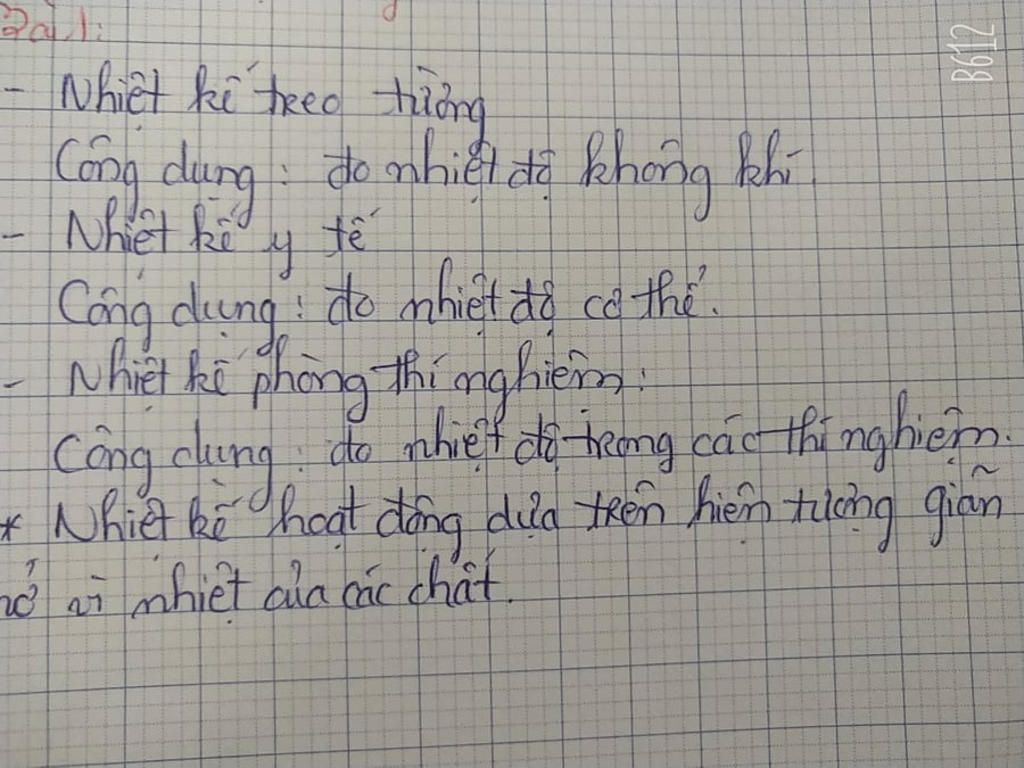 Bài 1:
- Nhiệt kế treo tường
Công dụng: đo nhiệt độ không khí
- Nhiệt kế y tế
Công dụng: đo nhiệt độ cơ thể.
- Nhiệt kế phòng thí nghiệm:
Công dụng: đo nhiệt độ trong các thí nghiệm.
* Nhiệt kế hoạt động dựa trên hiện tượng giãn
nở vì nhiệt của các chất.
B612